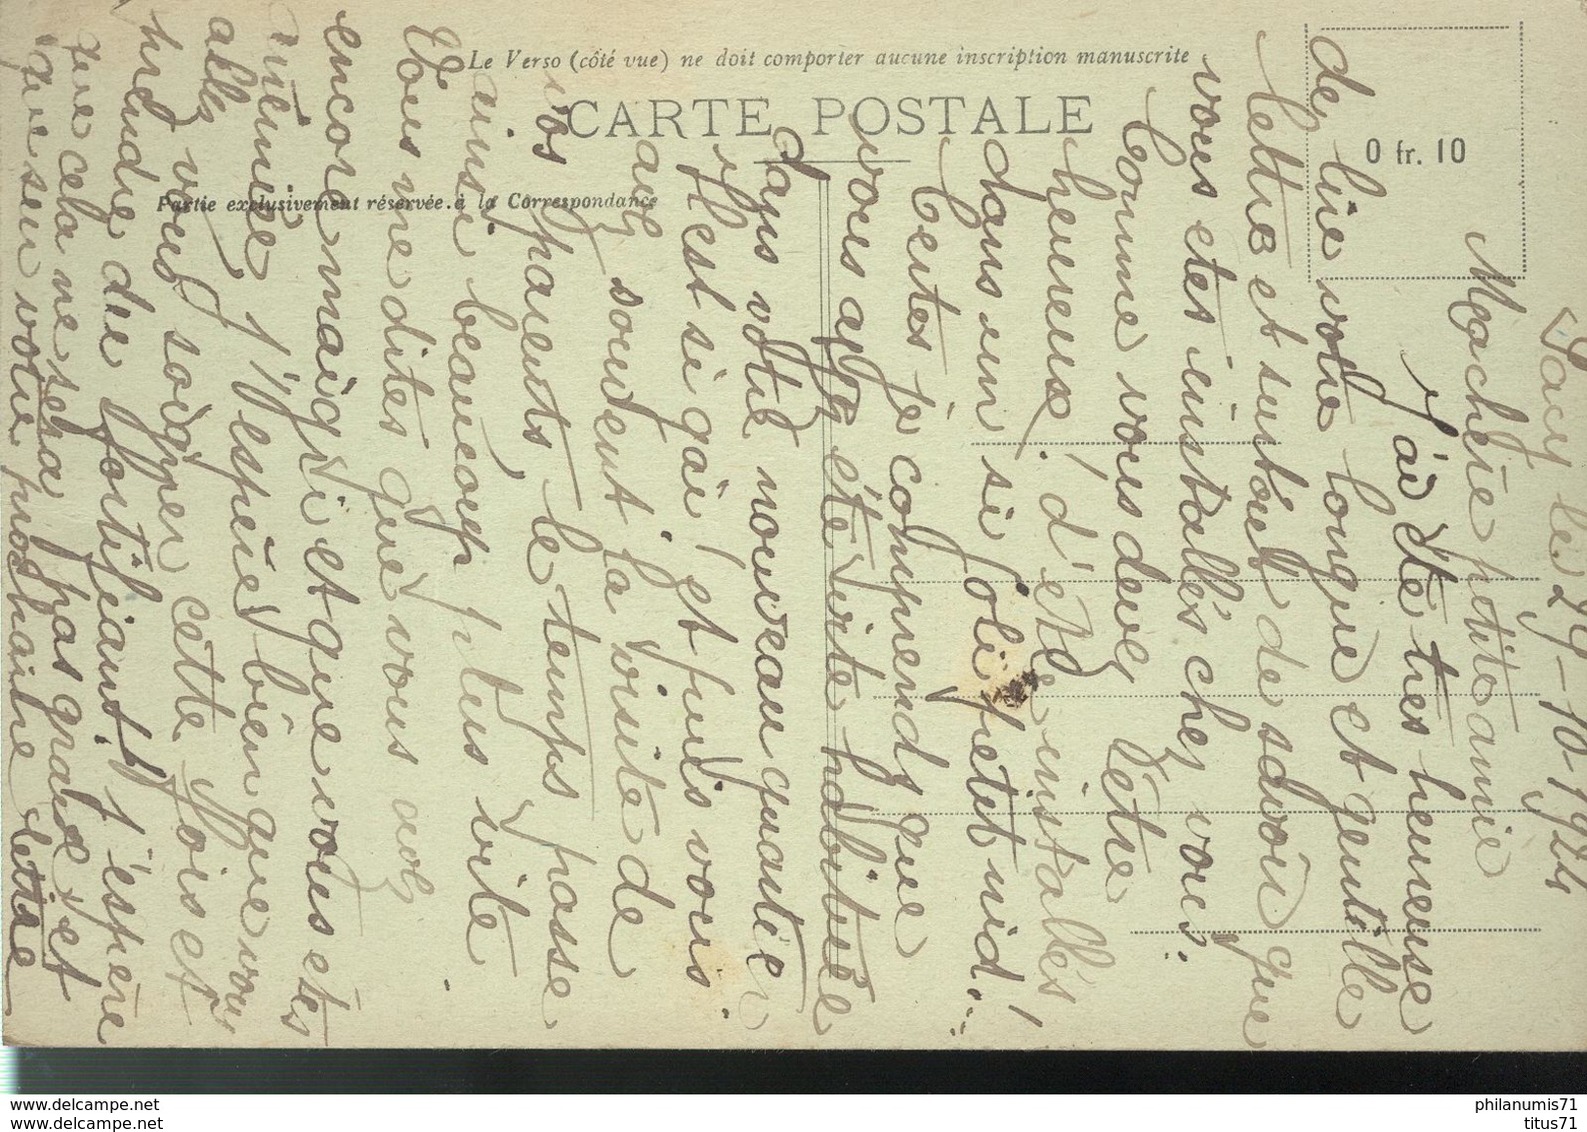 Le Verso (côté vue) ne doit comporter aucune inscription manuscrite
CARTE POSTALE
Partie exclusivement réservée à la Correspondance
0 fr. 10
Sacy le 29-10 1924
Ma chère petite amie
J'ai été très heureuse
de lire votre longue et gentille
lettre et surtout de savoir que
vous êtes installés chez vous.
Comme vous devez être
heureuse! d'être installés
dans un si joli petit nid!
Certes je comprends que
vous ayez été vite habituée
dans votre nouveau quartier
il est si gai! et puis vous
avez souvent la visite de
vos parents, le temps passe
ainsi beaucoup plus vite
Vous me dites que vous avez
encore maigri et que vous êtes
anémiée j'espère bien que vous
allez vous soigner cette fois et
prendre du fortifiant, j'espère
que cela ne sera pas grave et
que sur votre prochaine lettre
philanumis71
titus71